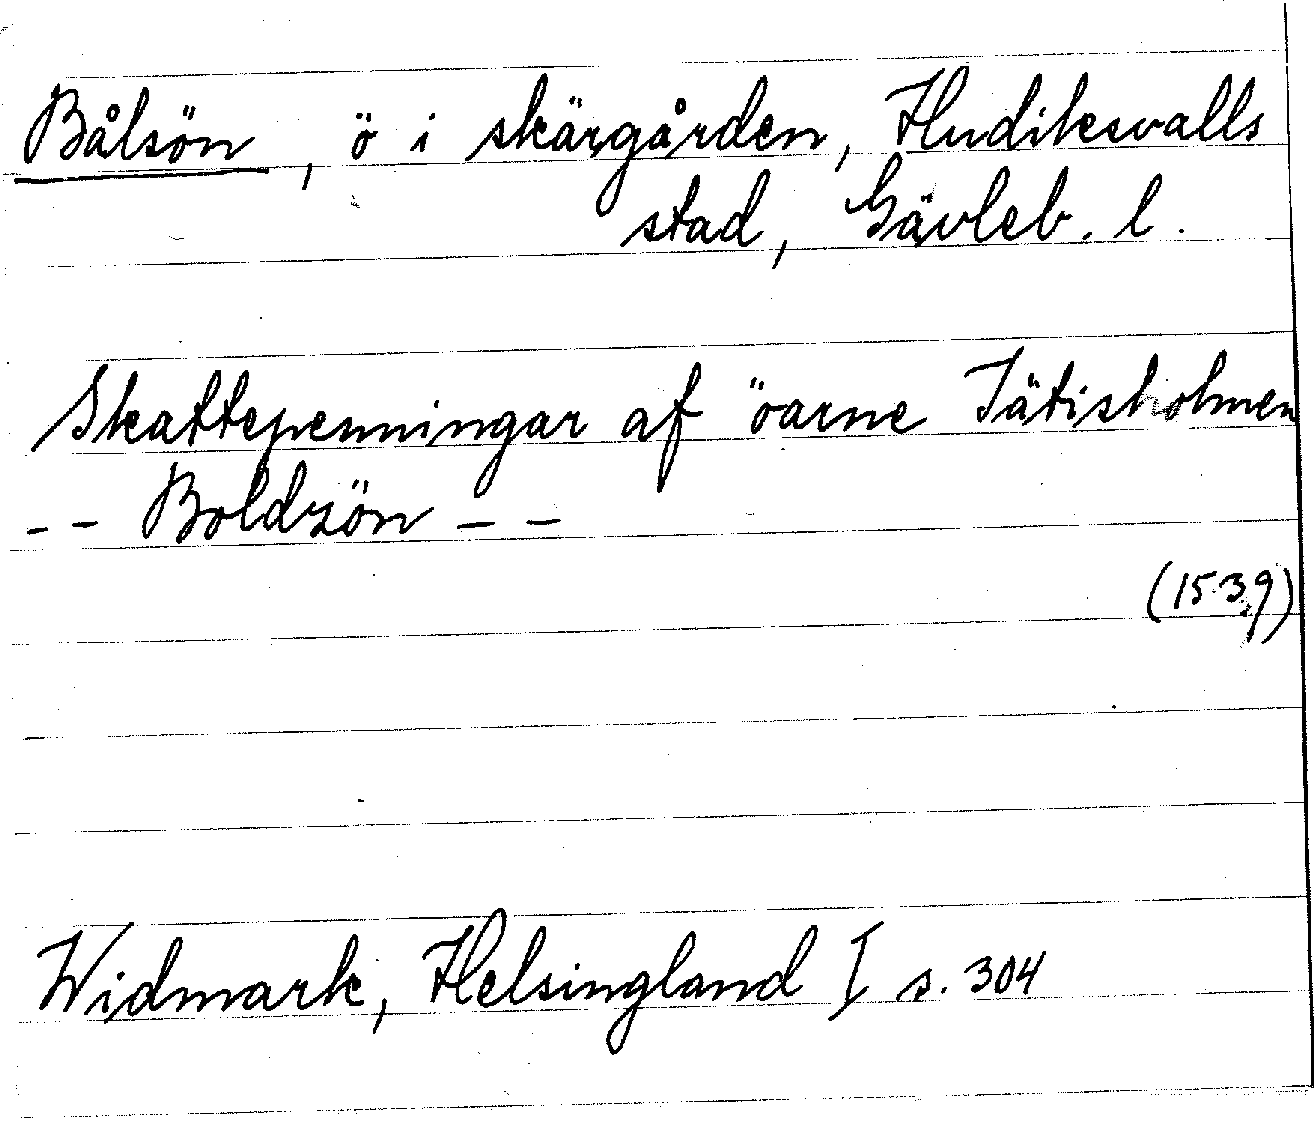 Bålsön, ö i skärgården, Hudiksvalls
stad, Gävleb. l.
Skattepenningar af öarne Jätisholmen
-- Boldzön --
(1539)
Widmark, Helsingland I s. 304